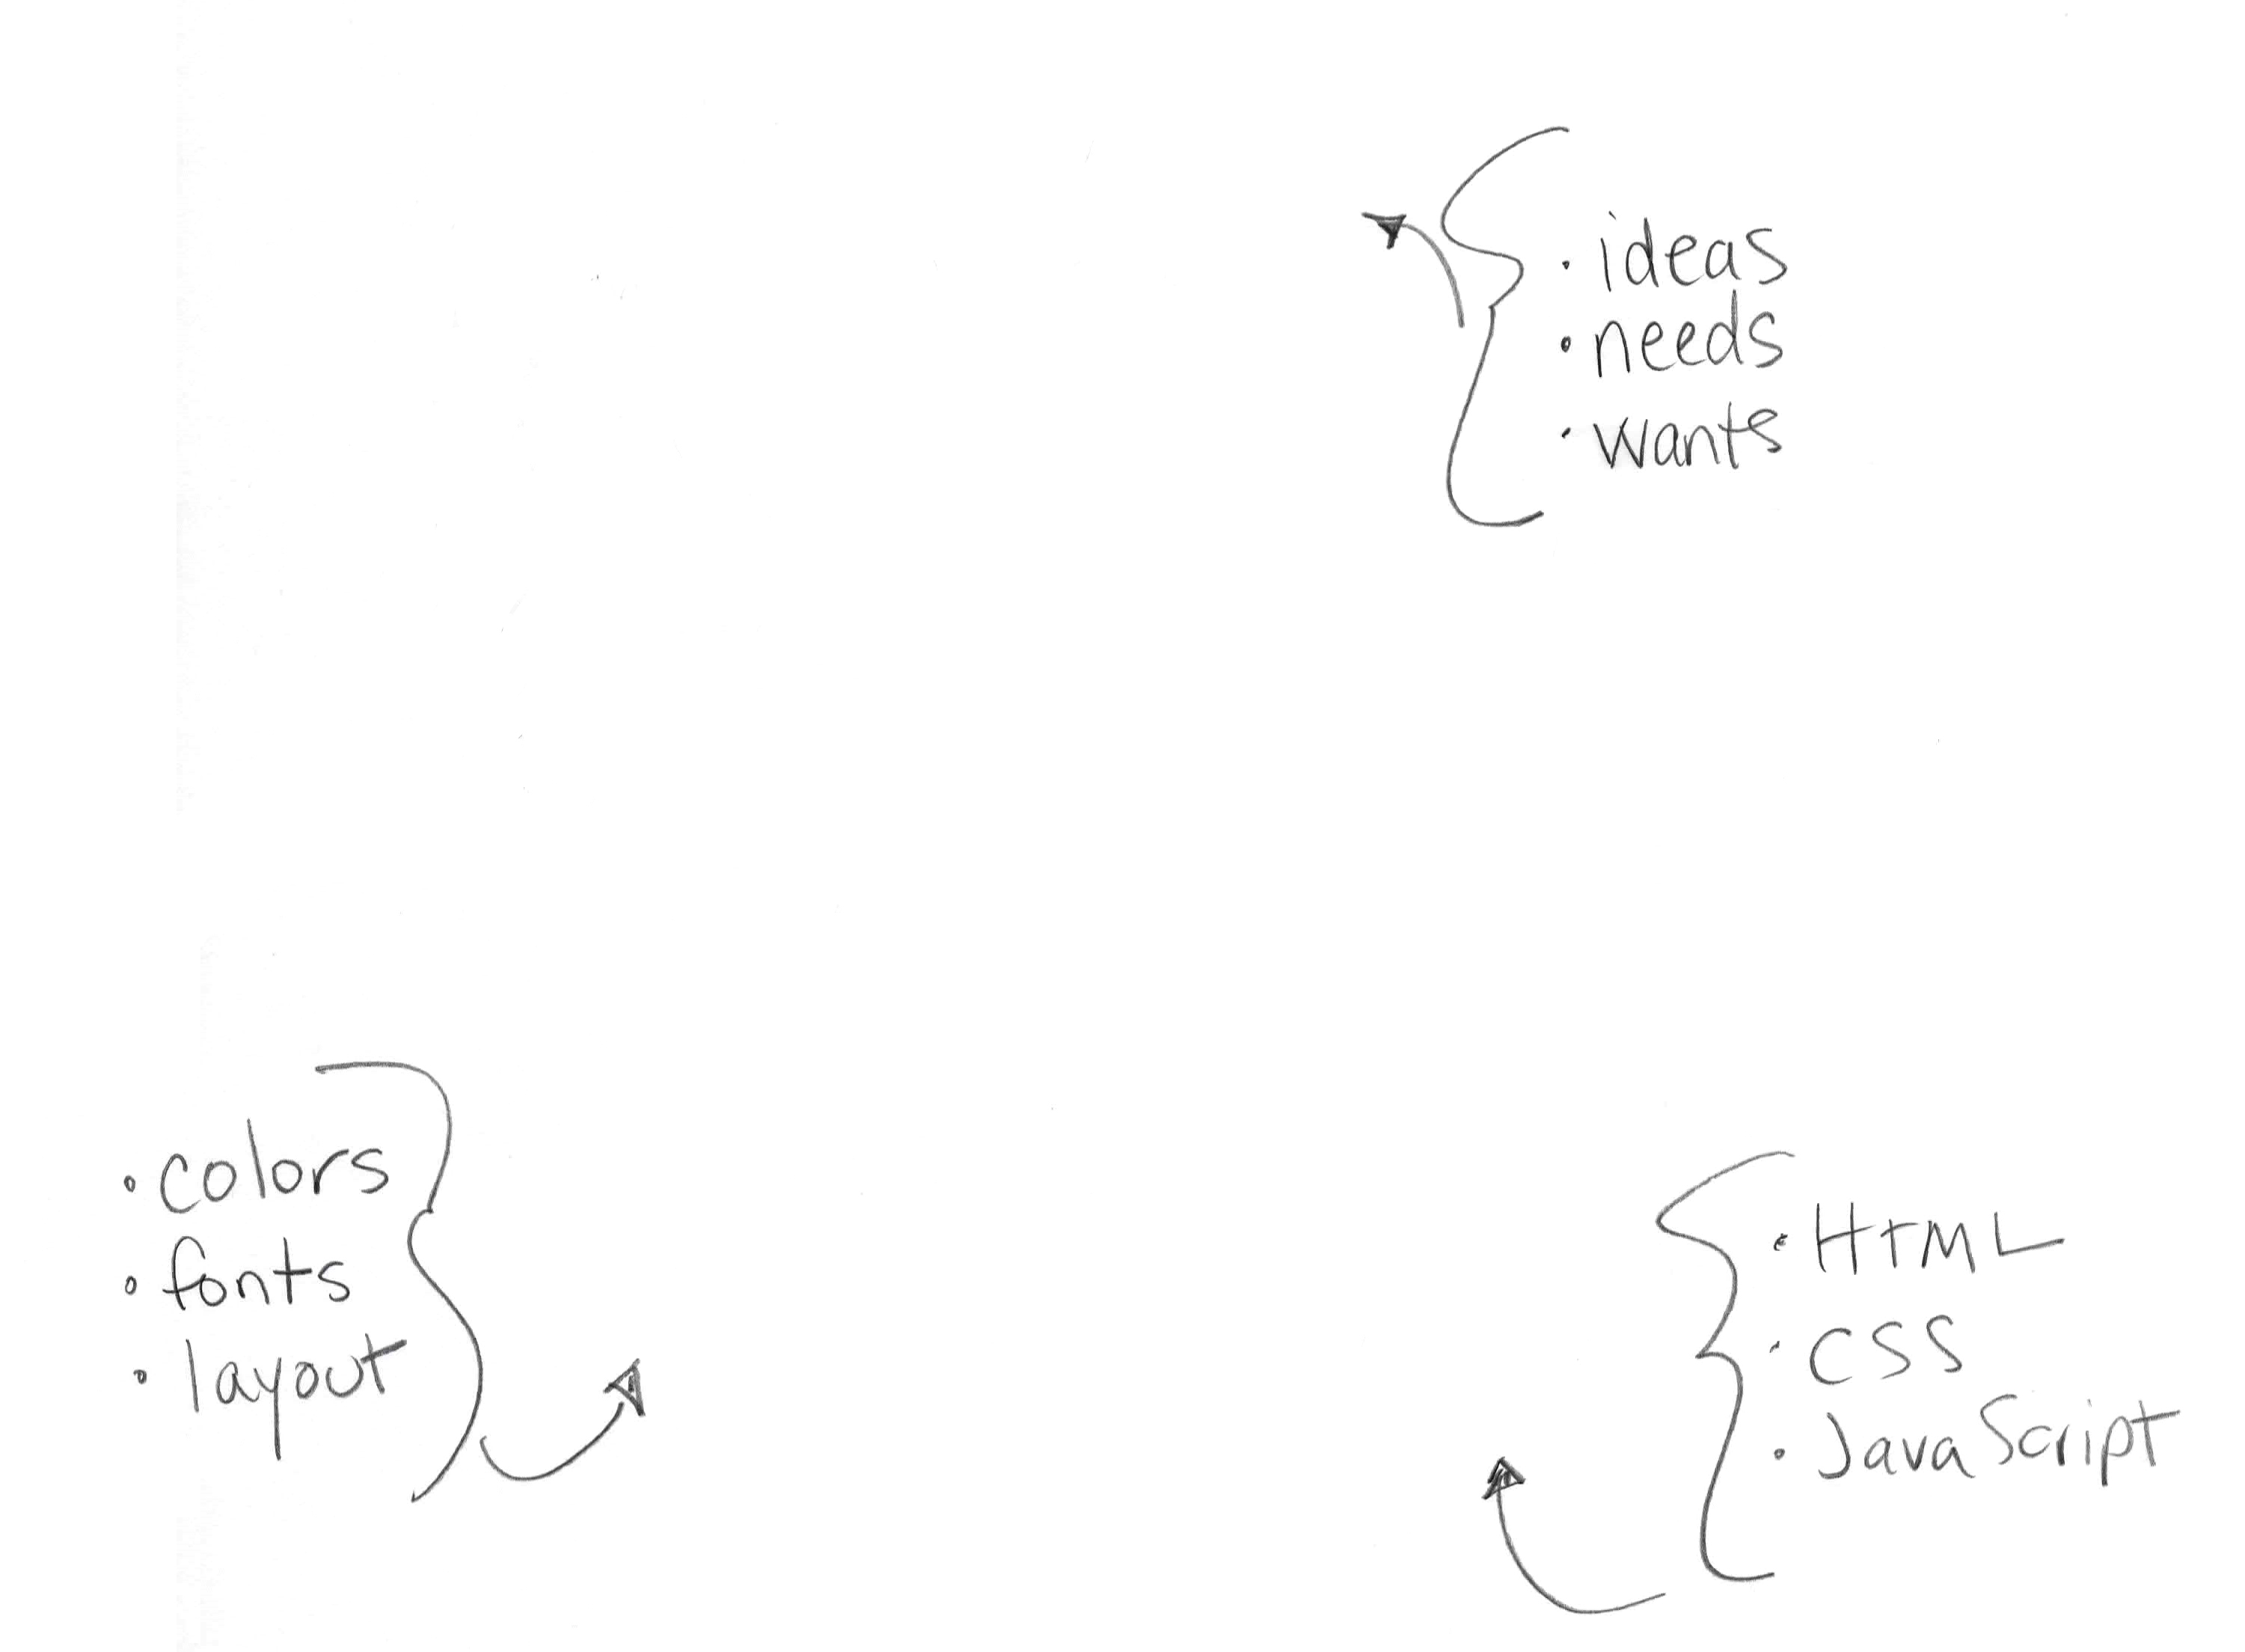 · ideas
· needs
· wants
· colors
· fonts
· layout
· HTML
· CSS
· JavaScript